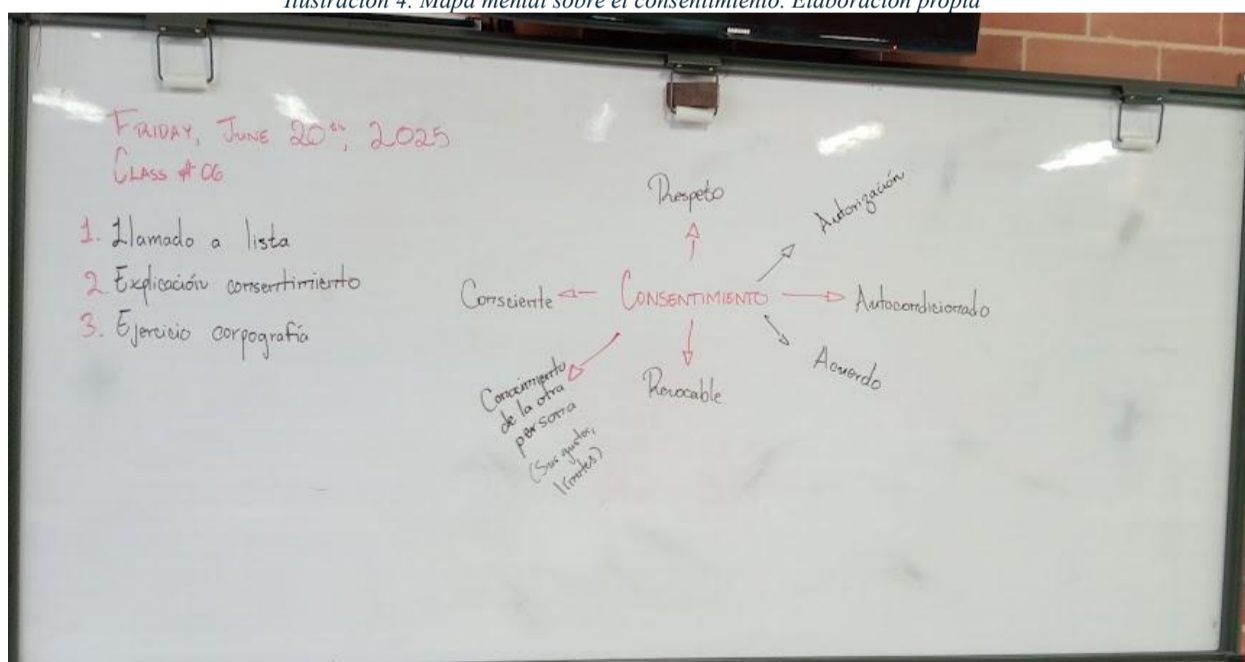 Ilustración 4. Mapa mental sobre el consentimiento. Elaboración propia
FRIDAY, JUNE 20th, 2025
CLASS # 06
1. Llamado a lista
2 Explicación consentimiento
3. Ejercicio corpografía
Respeto
Autorización
Consciente
CONSENTIMIENTO
Autocondicionado
Acuerdo
Revocable
Conocimiento
de la otra
persona
(Sus gustos,
límites)